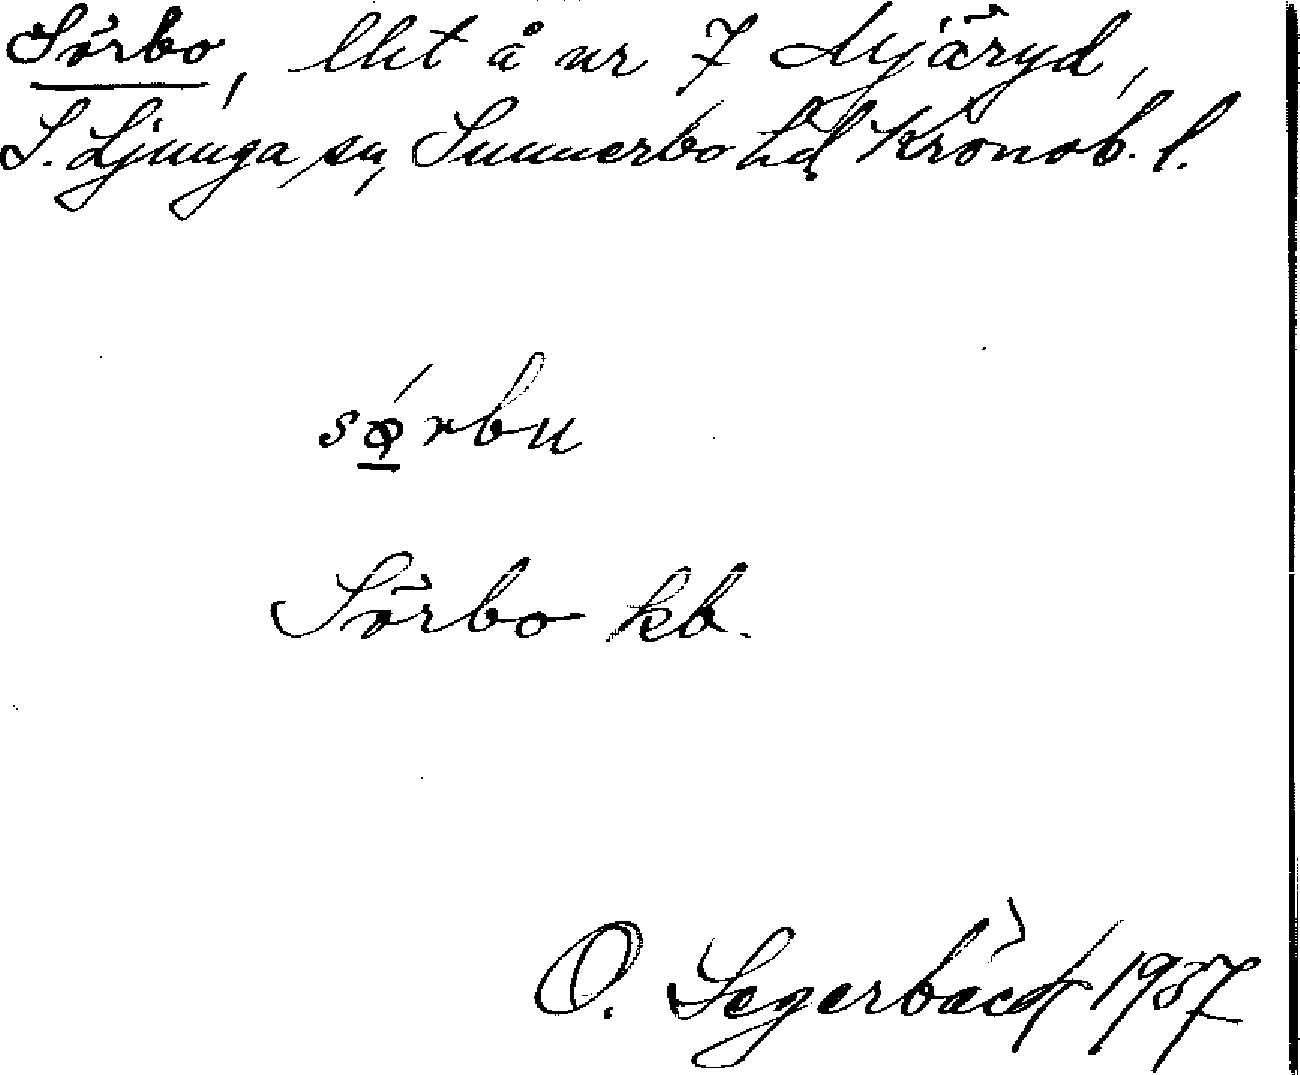 Sörbo, lht å nr 7 Mjäryd,
S. Ljunga sn, Sunnerbo hd Kronob. l.
sǿ̱rbu
Sörbo kb.
O. Segerbäck 1937